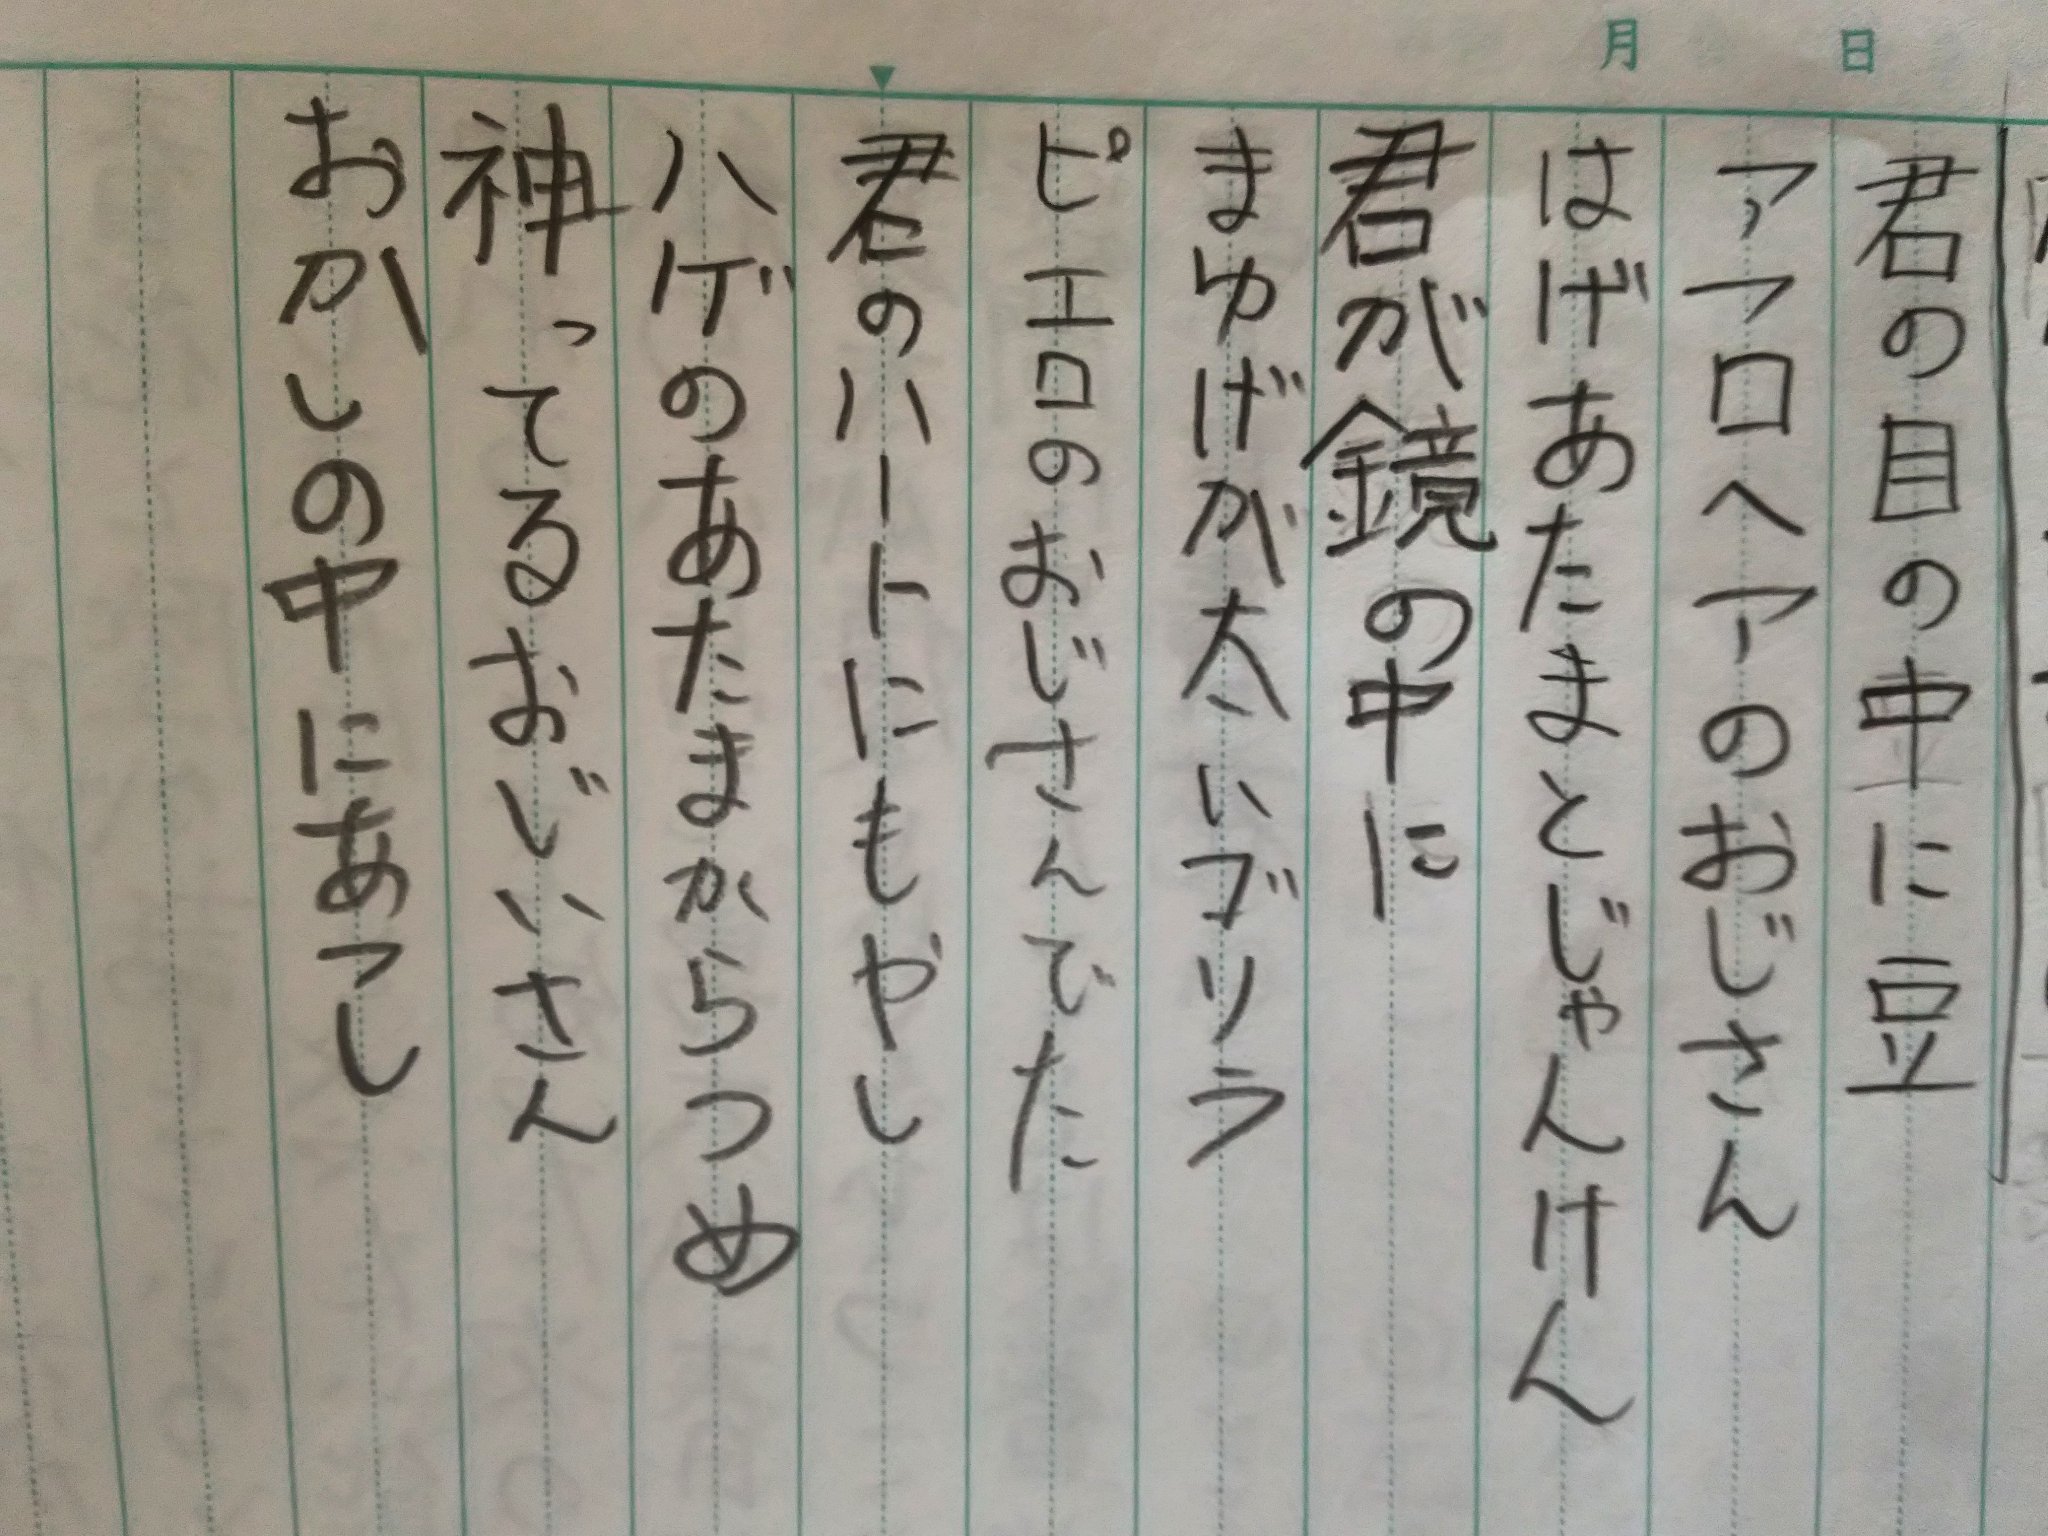 月 日
君の目の中に豆
アフロヘアのおじさん
はげあたまとじゃんけん
君が鏡の中に
まゆげが太いゴリラ
ピエロのおじさんでた
君のハートにもやし
ハゲのあたまからつめ
神ってるおじいさん
おかしの中にあつし